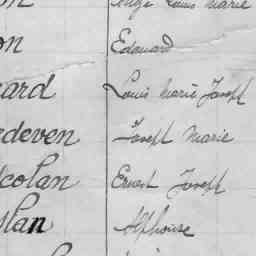 on Edouard
ard Louis Marie Joseph
edeven Joseph Marie
colan Ernest Joseph
slan Alphonse